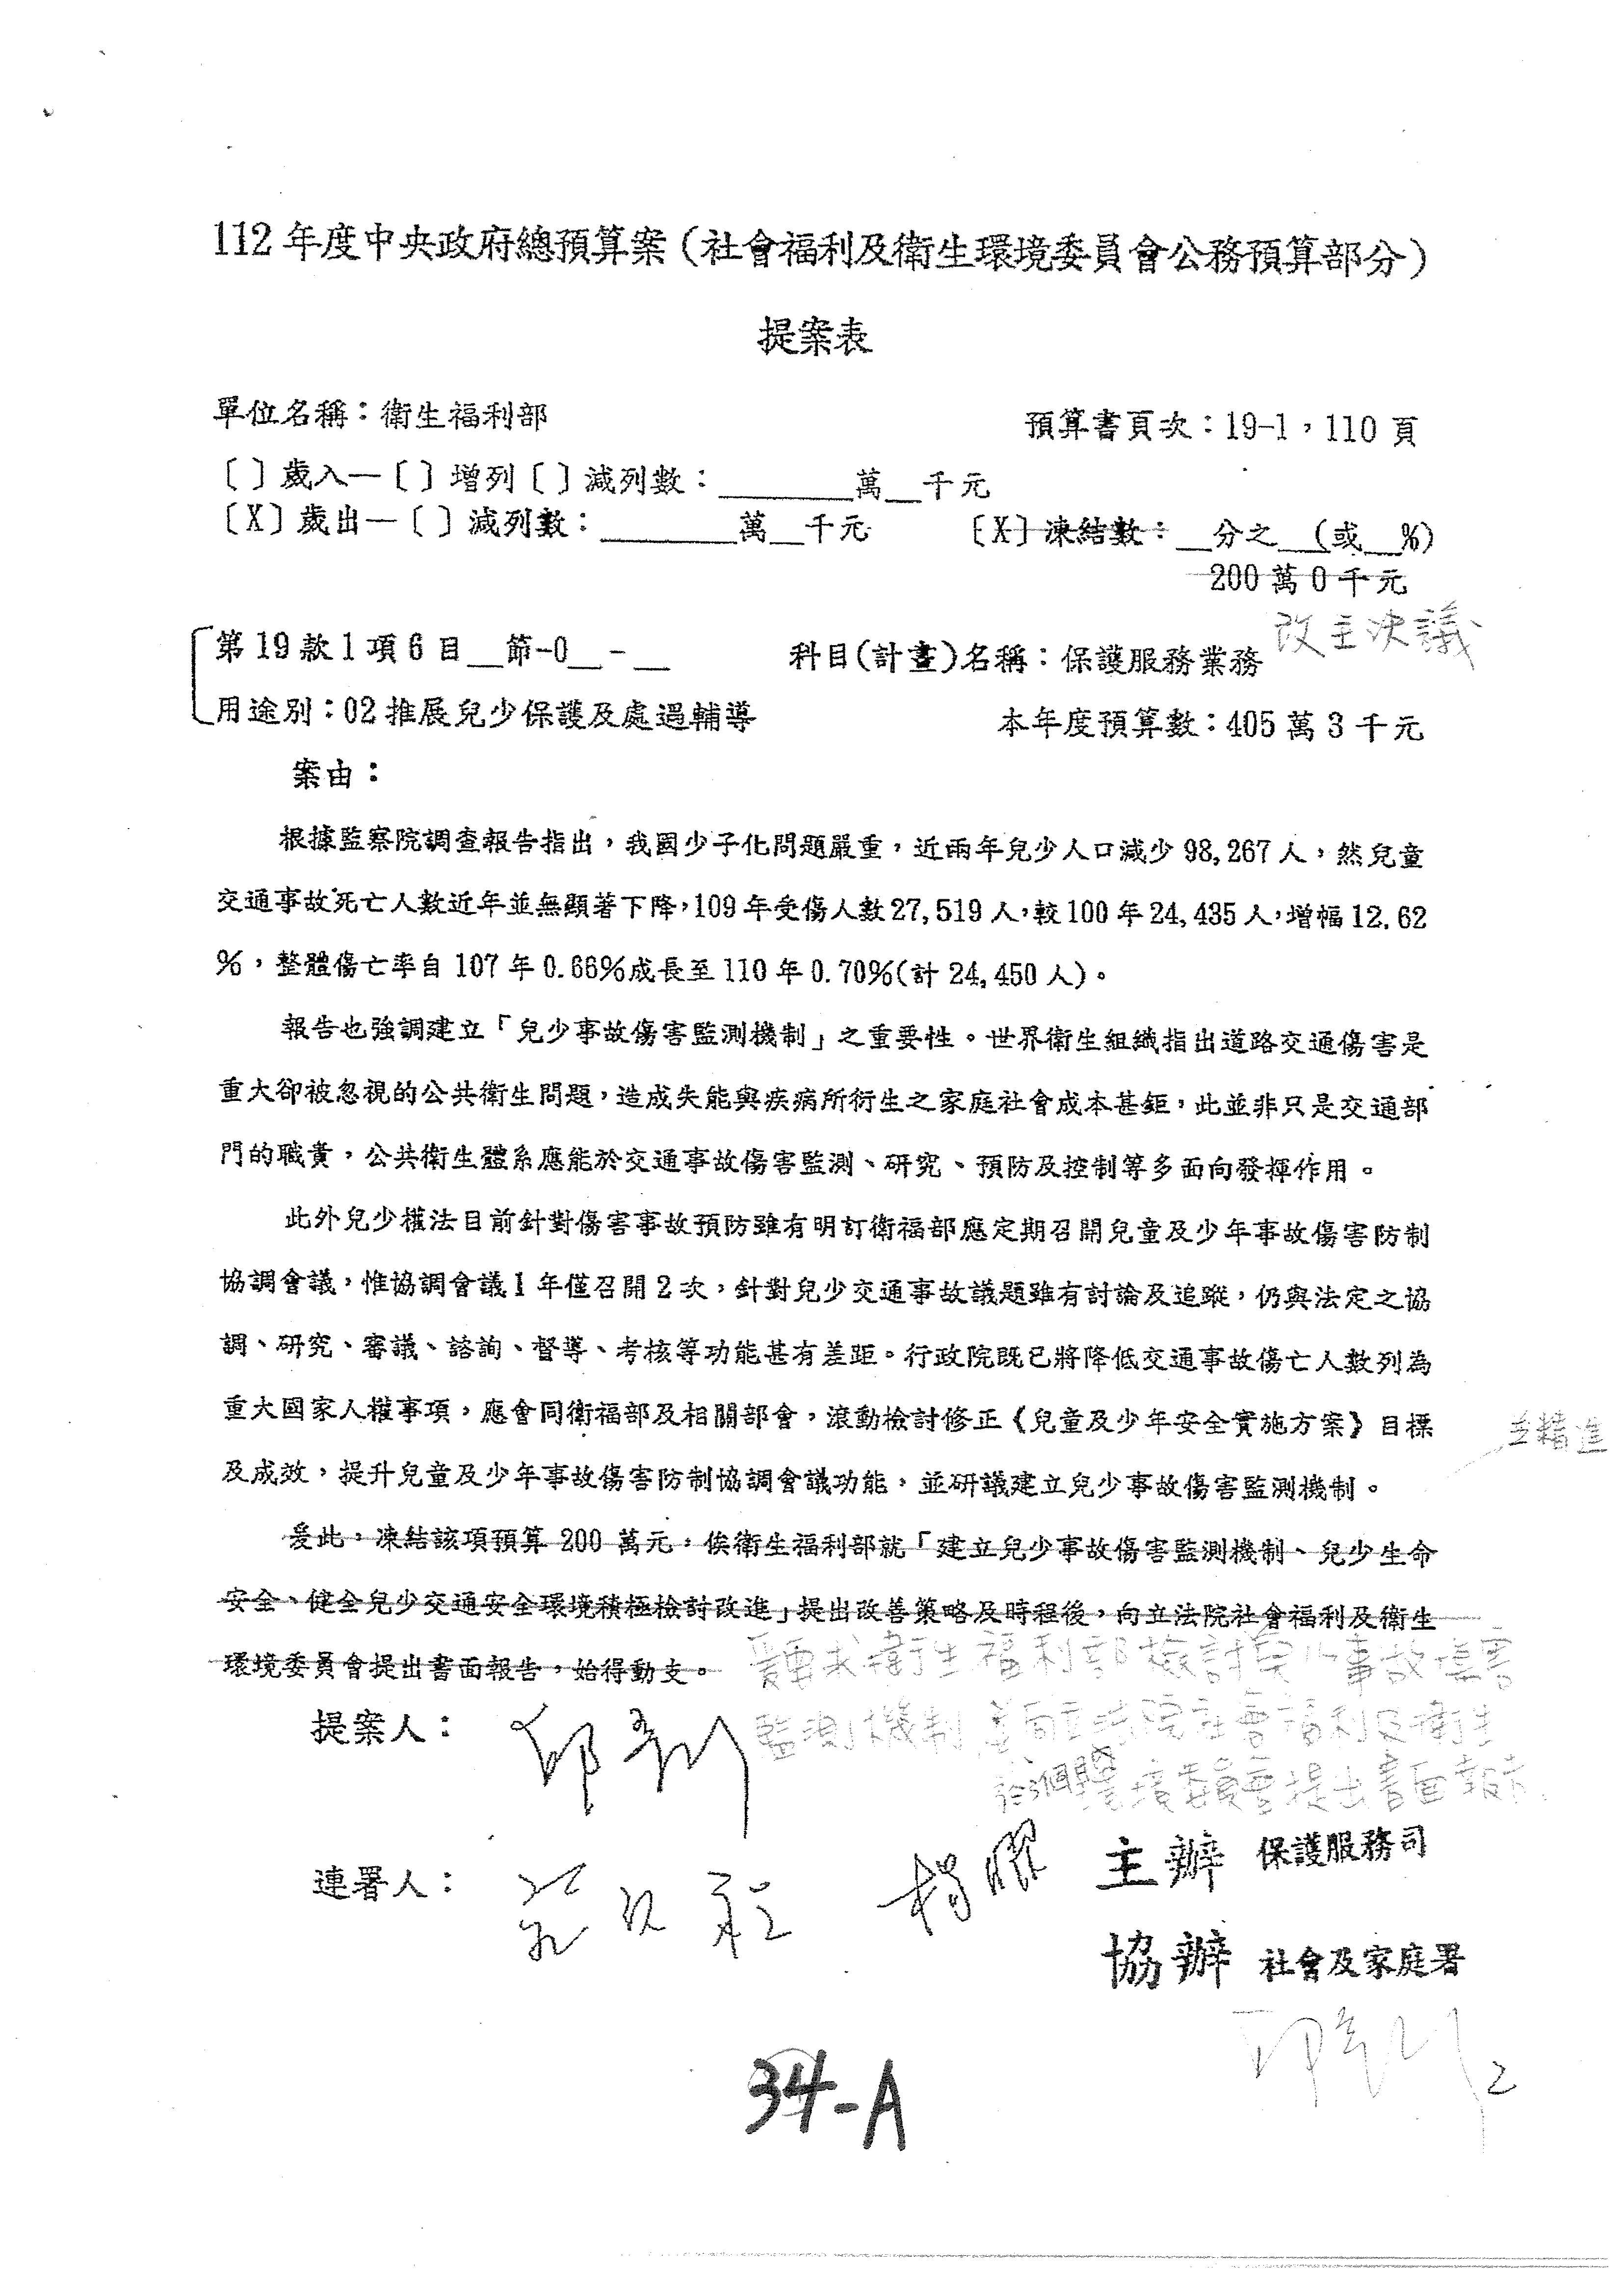 112 年度中央政府總預算案（社會福利及衛生環境委員會公務預算部分）
提案表
單位名稱：衛生福利部
預算書頁次：19-1，110 頁
〔 〕歲入—〔 〕增列〔 〕減列數：________萬__千元
〔X〕歲出—〔 〕減列數：________萬__千元
〔X〕凍結數：__分之__(或__%)
200 萬 0 千元
改主決議
第 19 款 1 項 6 目__節-0__-__
科目(計畫)名稱：保護服務業務
用途別：02 推展兒少保護及處遇輔導
本年度預算數：405 萬 3 千元
案由：
根據監察院調查報告指出，我國少子化問題嚴重，近兩年兒少人口減少 98,267 人，然兒童
交通事故死亡人數近年並無顯著下降，109 年受傷人數 27,519 人，較 100 年 24,435 人，增幅 12.62
%，整體傷亡率自 107 年 0.66%成長至 110 年 0.70%(計 24,450 人)。
報告也強調建立「兒少事故傷害監測機制」之重要性。世界衛生組織指出道路交通傷害是
重大卻被忽視的公共衛生問題，造成失能與疾病所衍生之家庭社會成本甚鉅，此並非只是交通部
門的職責，公共衛生體系應能於交通事故傷害監測、研究、預防及控制等多面向發揮作用。
此外兒少權法目前針對傷害事故預防雖有明訂衛福部應定期召開兒童及少年事故傷害防制
協調會議，惟協調會議 1 年僅召開 2 次，針對兒少交通事故議題雖有討論及追蹤，仍與法定之協
調、研究、審議、諮詢、督導、考核等功能甚有差距。行政院既已將降低交通事故傷亡人數列為
重大國家人權事項，應會同衛福部及相關部會，滾動檢討修正《兒童及少年安全實施方案》目標
並精進
及成效，提升兒童及少年事故傷害防制協調會議功能，並研議建立兒少事故傷害監測機制。
爰此，凍結該項預算 200 萬元，俟衛生福利部就「建立兒少事故傷害監測機制、兒少生命
安全、健全兒少交通安全環境積極檢討改進」提出改善策略及時程後，向立法院社會福利及衛生
環境委員會提出書面報告，始得動支。
要求衛生福利部檢討兒少事故傷害
監測機制
向立法院社會福利及衛生
環境委員會提出書面報告
提案人：
連署人：
楊曜
主辦 保護服務司
協辦 社會及家庭署
2
34-A